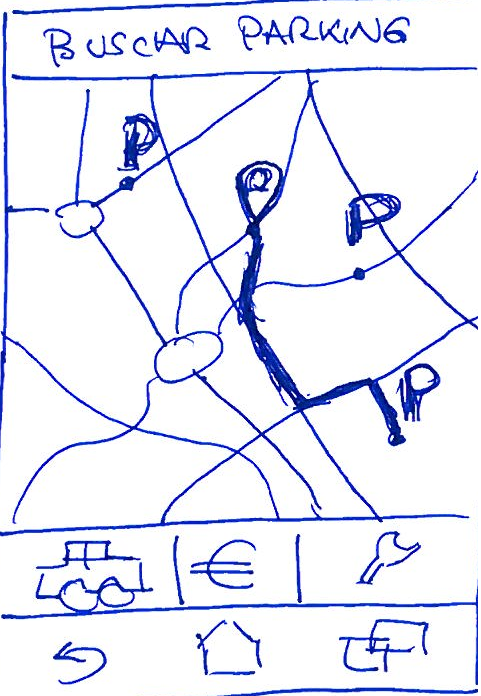 BUSCAR PARKING
P
P
P
€